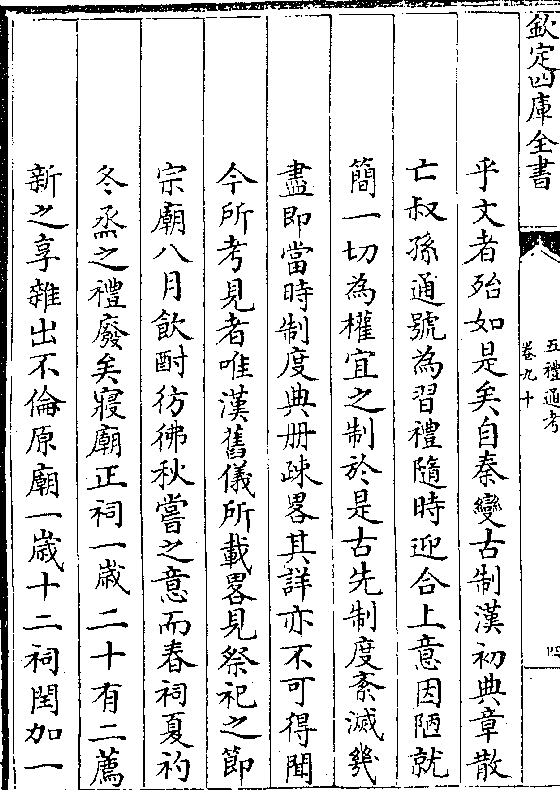 欽定四庫全書
五禮通考
卷九十
乎文者殆如是矣自秦變古制漢初典章散
亡叔孫通號為習禮隨時迎合上意因陋就
簡一切為權宜之制於是古先制度紊滅幾
盡即當時制度典册疎畧其詳亦不可得聞
今所考見者唯漢舊儀所載畧見祭祀之節
宗廟八月飲酎彷彿秋嘗之意而春祠夏礿
冬烝之禮廢矣寢廟正祠一歲二十有二薦
新之享雜出不倫原廟一歲十二祠閏加一